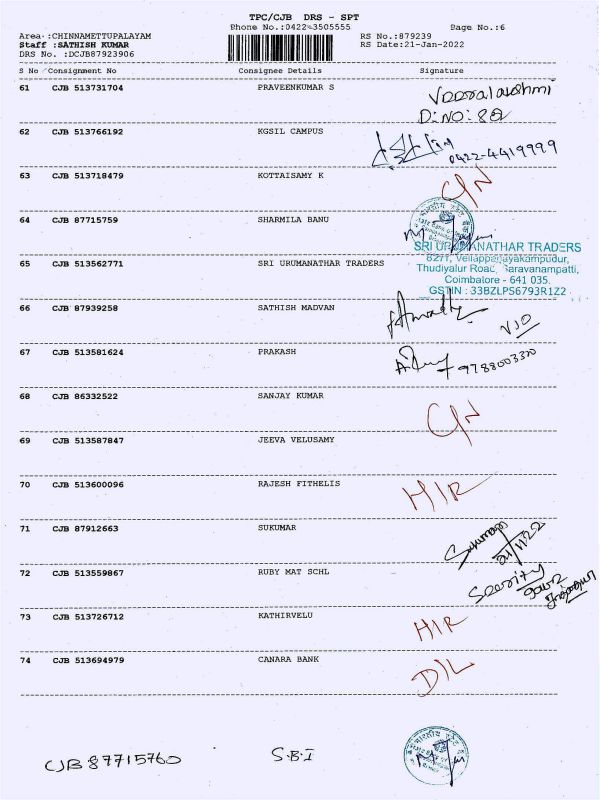 TPC/CJB DRS - SPT
Phone No.:0422-3505555
Page No.:6
Area :CHINNAMETTUPALAYAM
RS No.:879239
Staff :SATHISH KUMAR
RS Date:21-Jan-2022
DRS No. :DCJB87923906
S No Consignment No Consignee Details Signature
61 CJB 513731704 PRAVEENKUMAR S
D:NO:82
62 CJB 513766192 KGSIL CAMPUS
0422-4419999
63 CJB 513718479 KOTTAISAMY K C/N
64 CJB 87715759 SHARMILA BANU
SRI URUMANATHAR TRADERS
65 CJB 513562771 SRI URUMANATHAR TRADERS
Thudiyalur Road, Saravanampatti,
Coimbatore - 641 035.
GSTIN : 33BZLPS6793R1Z2
66 CJB 87939258 SATHISH MADVAN
67 CJB 513581624 PRAKASH
9788003320
68 CJB 86332522 SANJAY KUMAR C/N
69 CJB 513587847 JEEVA VELUSAMY
70 CJB 513600096 RAJESH FITHELIS H/R
71 CJB 87912663 SUKUMAR
72 CJB 513559867 RUBY MAT SCHL
73 CJB 513726712 KATHIRVELU H/R
74 CJB 513694979 CANARA BANK D/L
CJB 87715760 S.B.I